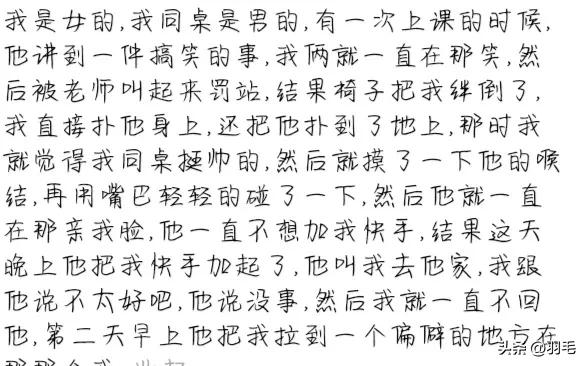 我是女的,我同桌是男的,有一次上课的时候,
他讲到一件搞笑的事,我俩就一直在那笑,然
后被老师叫起来罚站,结果椅子把我绊倒了,
我直接扑他身上,还把他扑到了地上,那时我
就觉得我同桌挺帅的,然后就摸了一下他的喉
结,再用嘴巴轻轻的碰了一下,然后他就一直
在那亲我脸,他一直不想加我快手,结果这天
晚上他把我快手加起了,他叫我去他家,我跟
他说不太好吧,他说没事,然后我就一直不回
他,第二天早上他把我拉到一个偏僻的地方在
头条 @羽毛